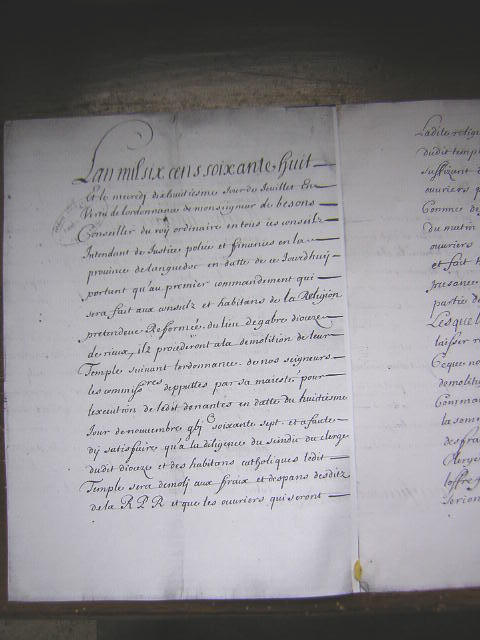 Lan mil six cens soixante huit
Et le mecredj dixhuitiesme Jour de Juillet En
Vertu de lordonnance de monseigneur de besons
Conseiller du roy ordinaire en tous ses conseilz
Intendant de Justice police et finances en la
province de languedoc en datte de ce Jourdhuy
portant qu'au premier commandement qui
sera fait aux consulz et habitans de la Religion
pretendue Refformée du lieu de gabre dioceze
de rieux, ilz procederont a la demolition de leur
Temple suivant lordonnance de nos seigneurs
les commiss^res depputtes par sa maiesté pour
lexecution de ledit de nantes en datte du huitiesme
Jour de nouembre soixante sept et a faute
dy satisfaire qu'a la diligence du sindic du clerge
dudit dioceze et des habitans catholiques ledit
Temple sera demolj aux fraix et despans desditz
de la R P R et que les ouuriers qui seront
Ladite relig
dudit temp
suffizant
ouuriers p
Comme de
du matin
ouuriers
et fait
presance
partie d
Lesquel
laisser
Ce que no
demolit
Comma
la som
des fra
Clerge
loffre